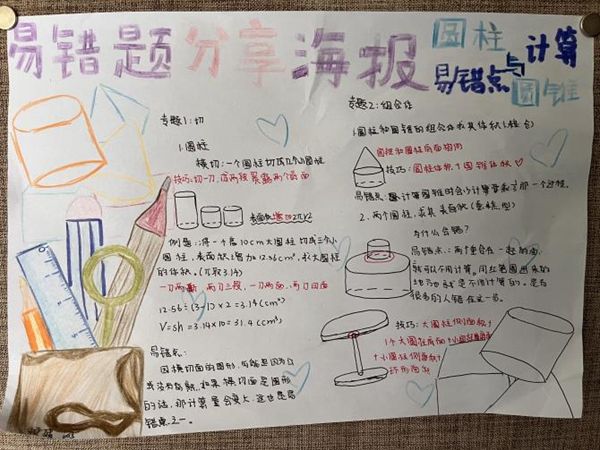 易错题分享海报
圆柱
计算
易错点与
圆锥
专题1:切
1.圆柱
横切:一个圆柱切成几个小圆柱
技巧:切一刀,
两个底面
例题:
一个高10cm大圆柱切成三个小
圆柱,表面积增加12.56cm²,求大圆柱
的体积。(π取3.14)
一刀两断,两刀三段,一刀两面,两刀四面
12.56÷(3-1)×2=3.14(cm²)
V=Sh=3.14×10=31.4(cm³)
易错点:
因横切面的图形,可能是因为
如果横切面是圆形
的话,那计算量会更大,这也是易
错点之一。
专题2:组合体
圆柱和圆锥的组合体求其体积
圆柱和圆锥底面相同
技巧:圆柱体积+圆锥体积
易错点:计算圆锥时会少计算乘三分之一这个过程。
2.两个圆柱,求其表面积
为什么会错?
易错点:两个重合在一起的面,
就可以不用计算。用红笔圈出来的
地方就是不用计算的。是有
很多的人错在这一步。
技巧:大圆柱侧面积+
1个大圆柱底面+
+小圆柱侧面积+
环形面积